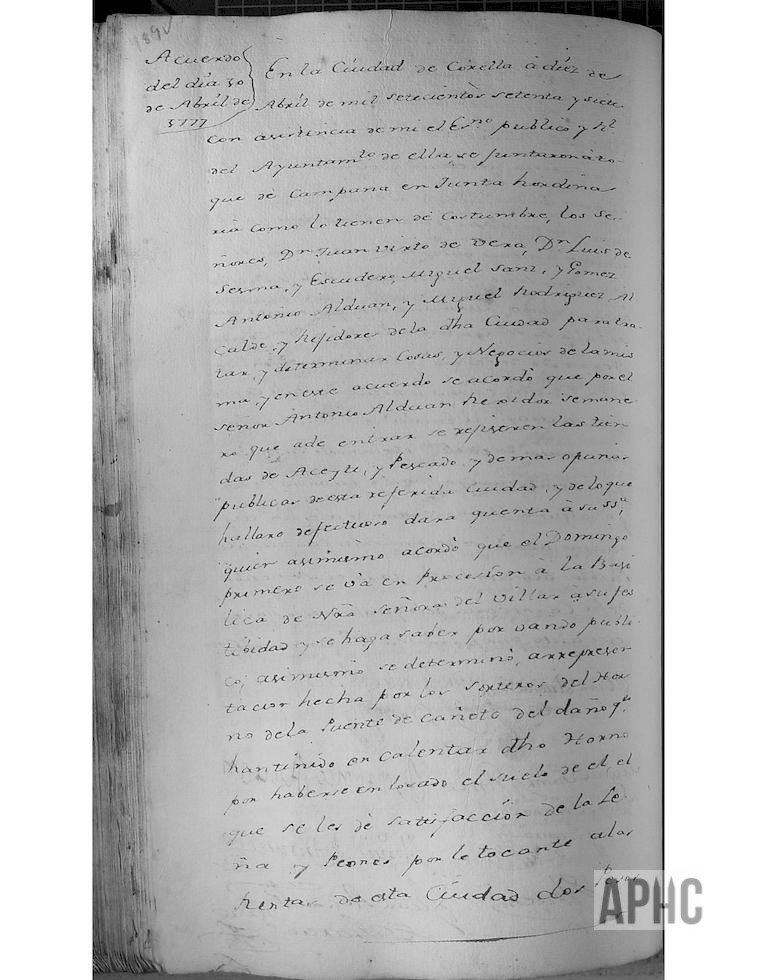 189V
Acuerdo
del dia 30
de Abril de
1777
En la Ciudad de Corella à diez de
Abril de mil setecientos setenta y siete
con asistencia de mi el Esno publico y Rl
del Ayuntamto de ella, se juntaron à to-
que de Campana en Junta hordina
ria como lo tienen de costumbre, los Se-
ñores, Dn Juan Virto de Vera, Dn Luis de
Sesma, y Escudero, Miguel Sanz, y Gomez
Antonio Alduan, y Miguel Rodriguez Al
calde, y Rejidores de la dha Ciudad para tra-
tar, y determinar Cosas, y Negocios de la mis
ma, y en este acuerdo se acordò que por el
señor Antonio Alduan Rejidor semane
ro que ade entrar se rejistren las tien
das de Aceyte, y Pescado, y demas opinas
publicas de esta referida Ciudad, y de lo que
hallare defectuoso dara quenta à sus Sa,
quien asimismo acordò que el Domingo
primero se và en Procesion à la Basi
lica de Nra Señora del Villar à su fes
tibidad y se haga saber por vando publi-
co; asimismo se determinò, a rrepresen
tacion hecha por los Sorteros del Hor
no de la Puente de Cañete del daño qe
han tinido en Calentar dho Horno
por haberse enlosado el suelo de el el
que se les dè satisfacción de la Le-
ña y Peones por lo tocante a las
Rentas de esta Ciudad dos Pesos
APHC